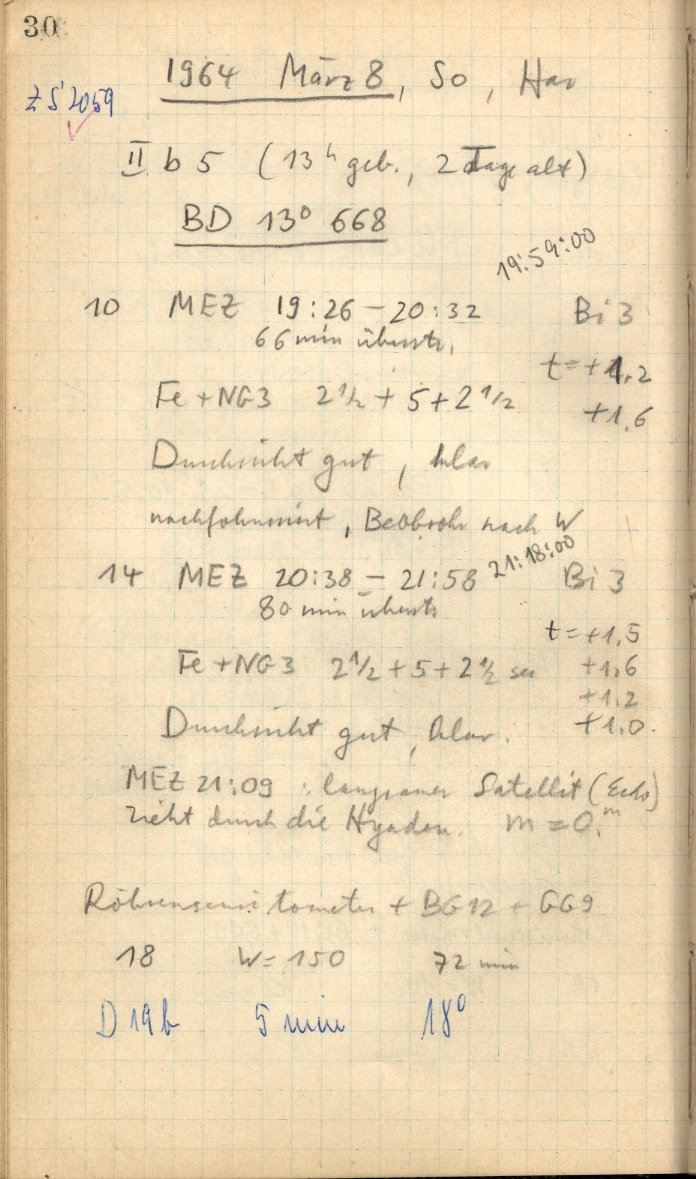 30
ZS 2059
1964 März 8, So, Hav
II b 5 (13ʰ geb., 2 Tage alt)
BD 13° 668
19:59:00
10 MEZ 19:26 – 20:32 Bi 3
66 min überstr.
t = +1,2
Fe + NG3 2 1/2 + 5 + 2 1/2 +1,6
Durchsicht gut, klar
nachfokussiert, Beobrohr nach W
21:18:00
14 MEZ 20:38 – 21:58 Bi 3
80 min überstr
t = +1,5
Fe + NG3 2 1/2 + 5 + 2 1/2 +1,6
+1,2
Durchsicht gut, klar. +1,0
MEZ 21:09 : langsamer Satellit (Echo)
zieht durch die Hyaden. m = 0,ᵐ
Röhrensensitometer + BG12 + GG9
18 W = 150 72 min
D 19b 5 min 18°